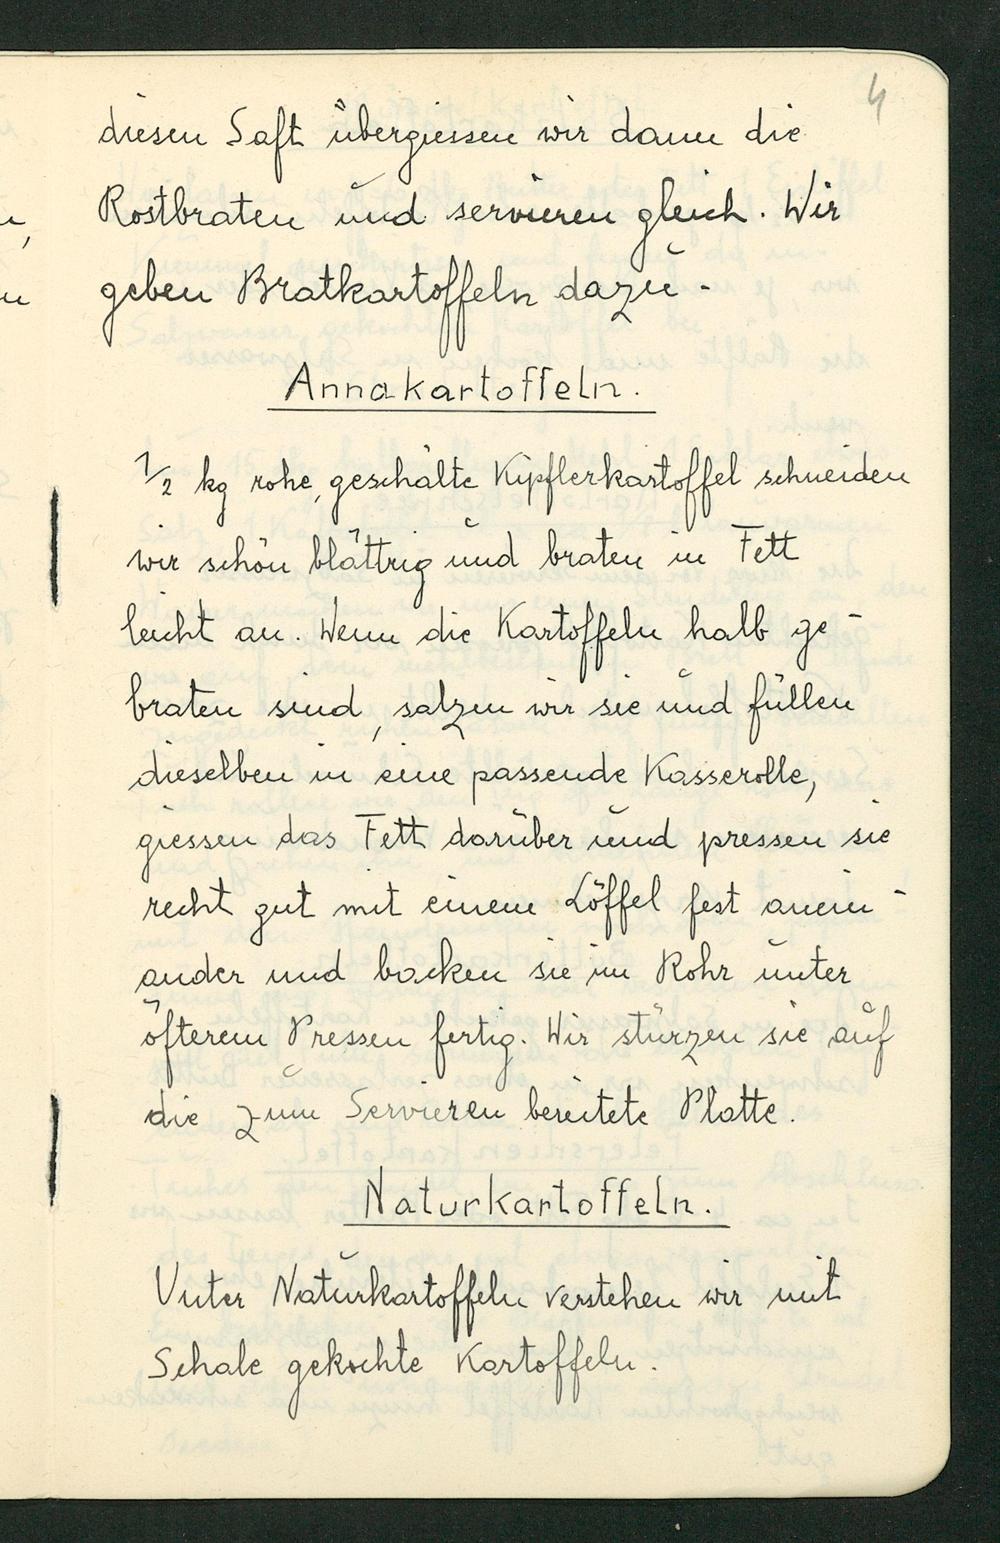 4
diesen Saft übergiessen wir dann die
Rostbraten und servieren gleich. Wir
geben Bratkartoffeln dazu.
Annakartoffeln.
1/2 kg rohe, geschälte Kipflerkartoffel schneiden
wir schön blättrig und braten in Fett
leicht an. Wenn die Kartoffeln halb ge-
braten sind, salzen wir sie und füllen
dieselben in eine passende Kasserolle,
giessen das Fett darüber und pressen sie
recht gut mit einem Löffel fest anein-
ander und backen sie im Rohr unter
öfterem Pressen fertig. Wir stürzen sie auf
die zum Servieren bereitete Platte.
Naturkartoffeln.
Unter Naturkartoffeln verstehen wir mit
Schale gekochte Kartoffeln.